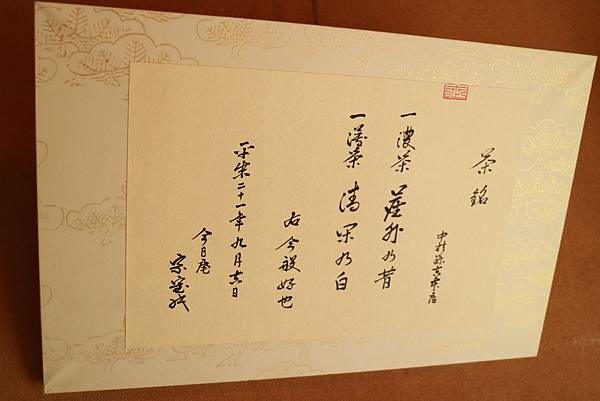 茶銘
中村藤吉本店
一濃茶 塵外乃昔
一薄茶 清閑乃白
右今般好也
平成二十一年九月吉日
今日庵
宗室